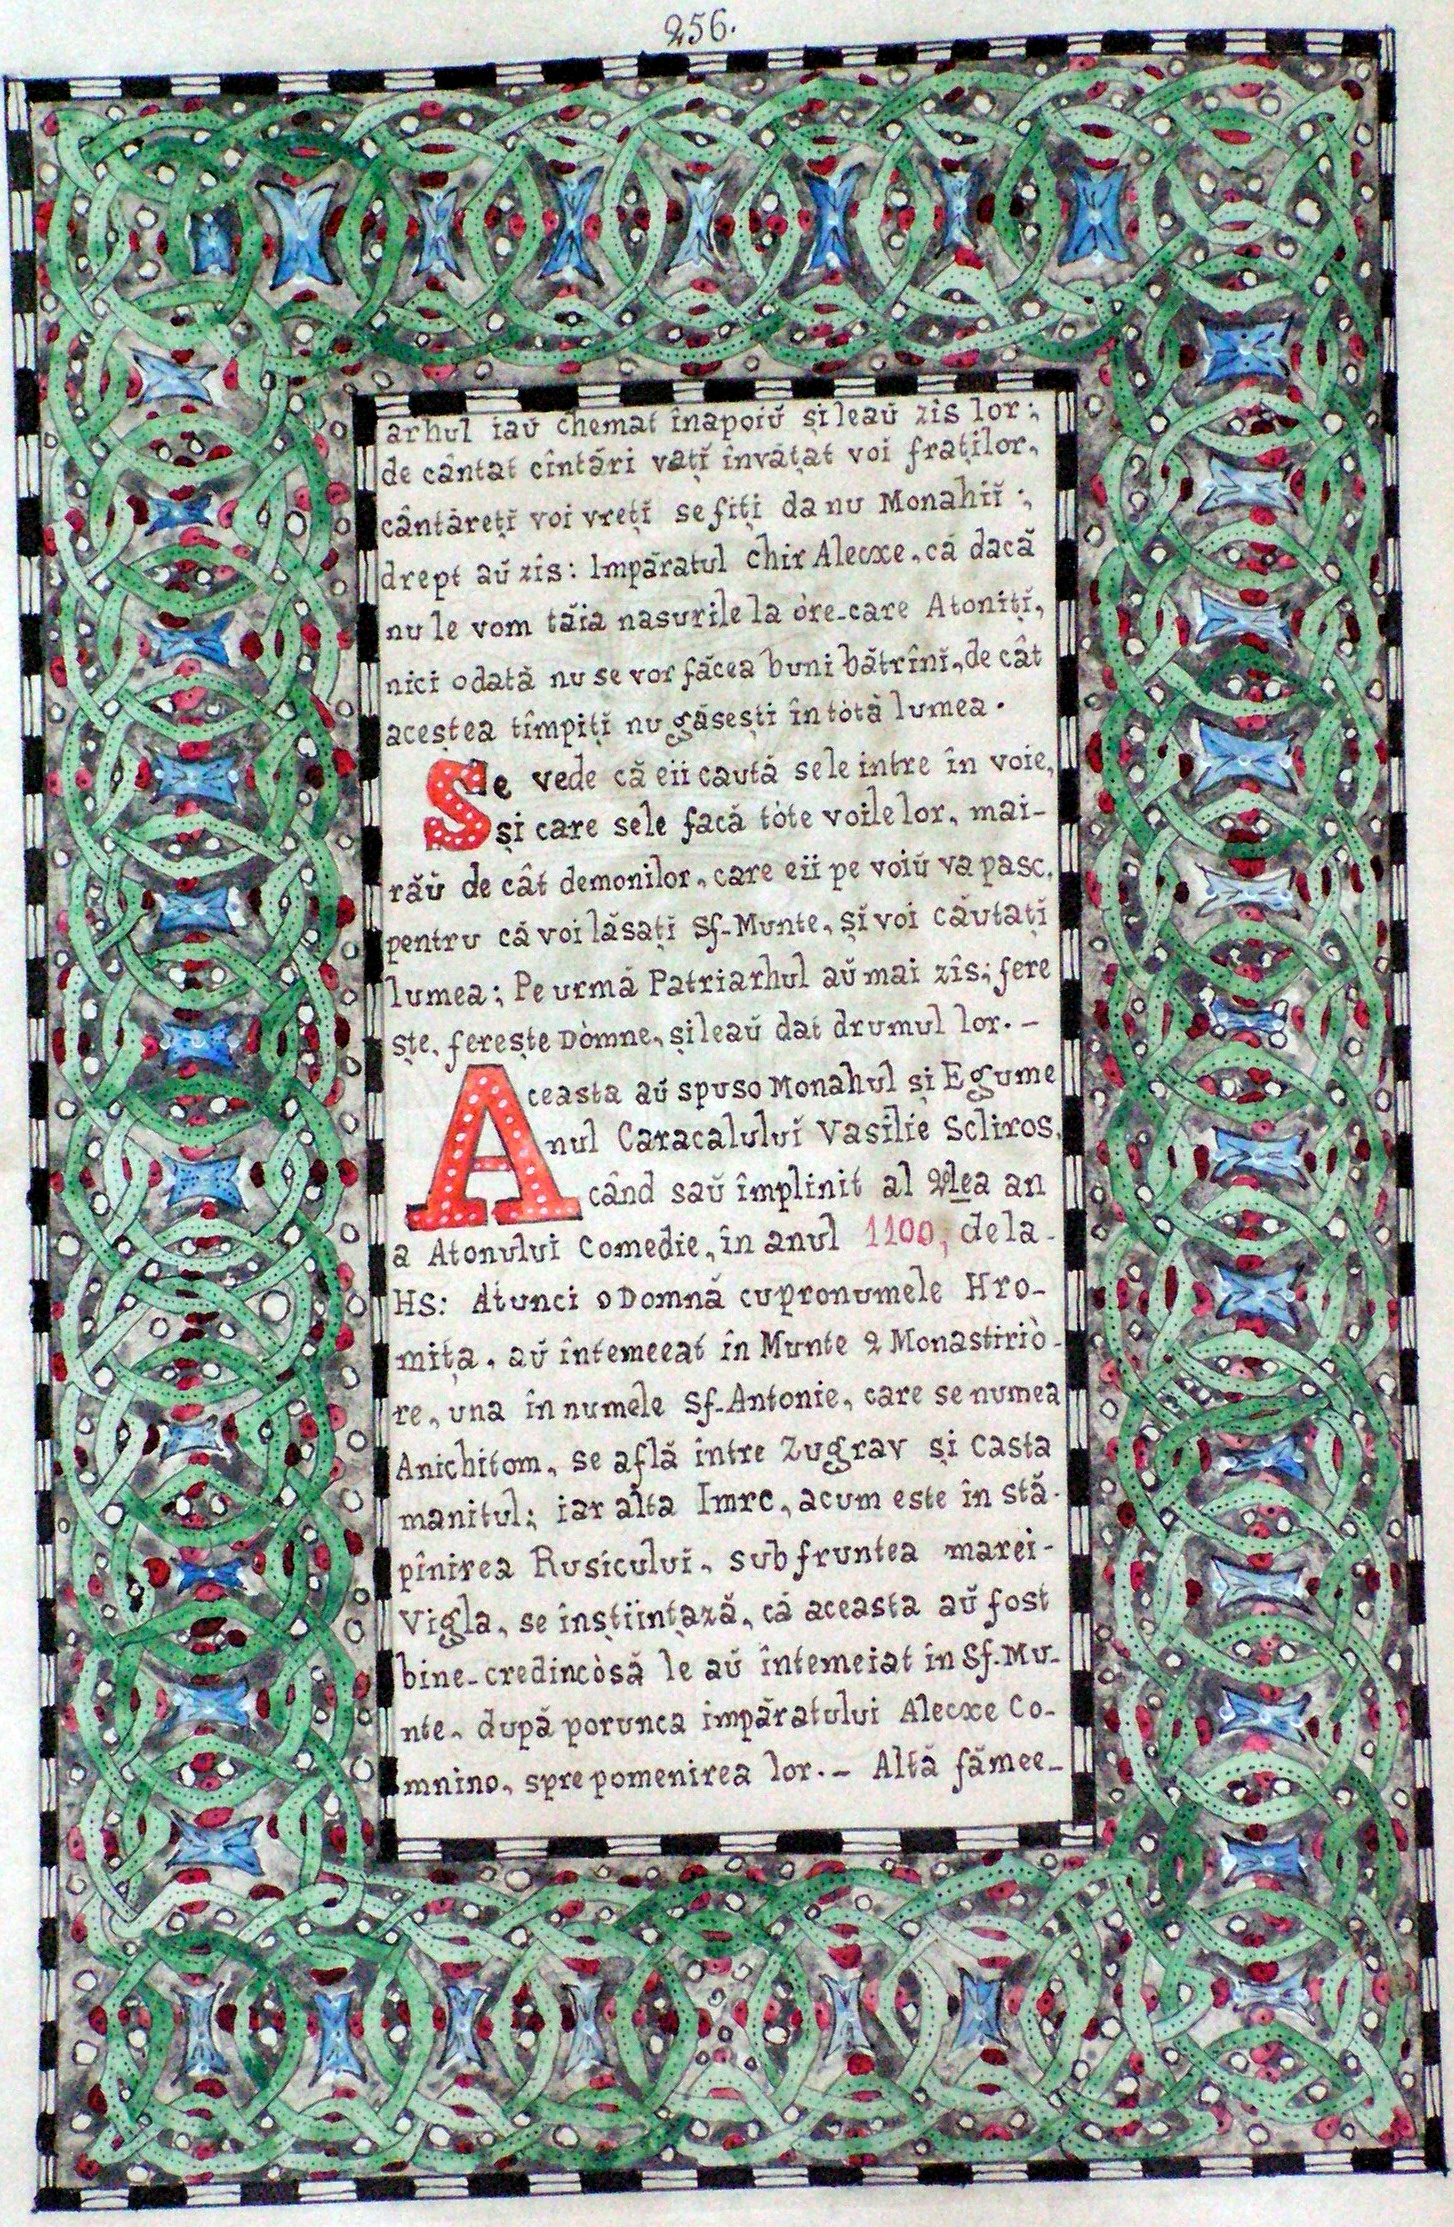 256.
arhul iaŭ chemat înapoiŭ și leaŭ zîs lor:,
de cântat cîntări vațĭ învățat voi fraților,
cântărețĭ voi vrețĭ se fiți da nu Monahiĭ:,
drept aŭ zis: Impăratul chir Alecxe, că dacă
nu le vom tăia nasurile la òre-care Atonițĭ,
nici odată nu se vor făcea buni bătrînĭ, de cât
aceștea tîmpițĭ nu găsești în tòtă lumea.
Se vede că eii caută sele intre în voie,
și care sele facă tòte voile lor, mai-
răŭ de cât demonilor, care eii pe voiŭ va pasc,
pentru că voi lăsați Sf-Munte, șĭ voi căutațĭ
lumea; Pe urmă Patriarhul aŭ mai zîs; fere
ște, ferește Dòmne, și leaŭ dat drumul lor.-
Aceasta aŭ spuso Monahul și Egume
nul Caracaluluĭ Vasîlie Scliros,
când saŭ împlinit al 2lea an
a Atonului Comedie, în anul 1100, de la-
HS: Atunci o Domnă cu pronumele Hro-
mița, aŭ întemeeat în Munte 2 Monastiriò-
re, una în numele Sf-Antonie, care se numea
Anichitom, se află între Zugrav și Casta
manitul; iar alta Imrc, acum este în stă-
pînirea Rusículuĭ, sub fruntea marei-
Vigla, se înștiințază, că aceasta aŭ fost
bine-credincòsă le aŭ întemeiat în Sf-Mu-
nte, după porunca impăratului Alecxe Co-
mnino, spre pomenirea lor.- Altă fămee-